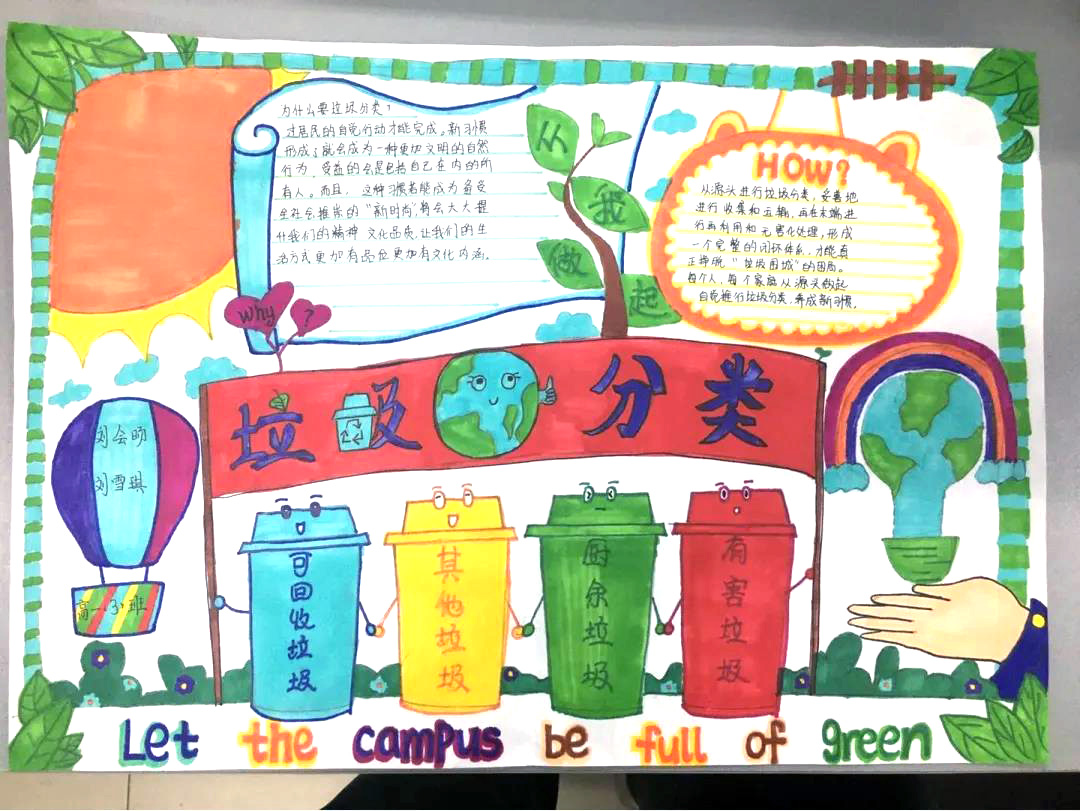 为什么要垃圾分类?
过居民的自觉行动才能完成。新习惯
形成了就会成为一种更加文明的自然
行为,受益的会是包括自己在内的所
有人。而且,这种习惯若能成为备受
全社会推崇的“新时尚”,将会大大提
升我们的精神文化品质,让我们的生
活方式更加有品位更加有文化内涵。
why
?
从
我
做
起
HOW?
从源头进行垃圾分类,妥善地
进行收集和运输,再在末端进
行再利用和无害化处理,形成
一个完整的闭环体系,才能真
正摆脱“垃圾围城”的困局。
每个人,每个家庭从源头做起
自觉推行垃圾分类,养成新习惯。
垃圾分类
刘会昉
刘雪琪
高一(3)班
可回收垃圾
其他垃圾
厨余垃圾
有害垃圾
Let the campus be full of green